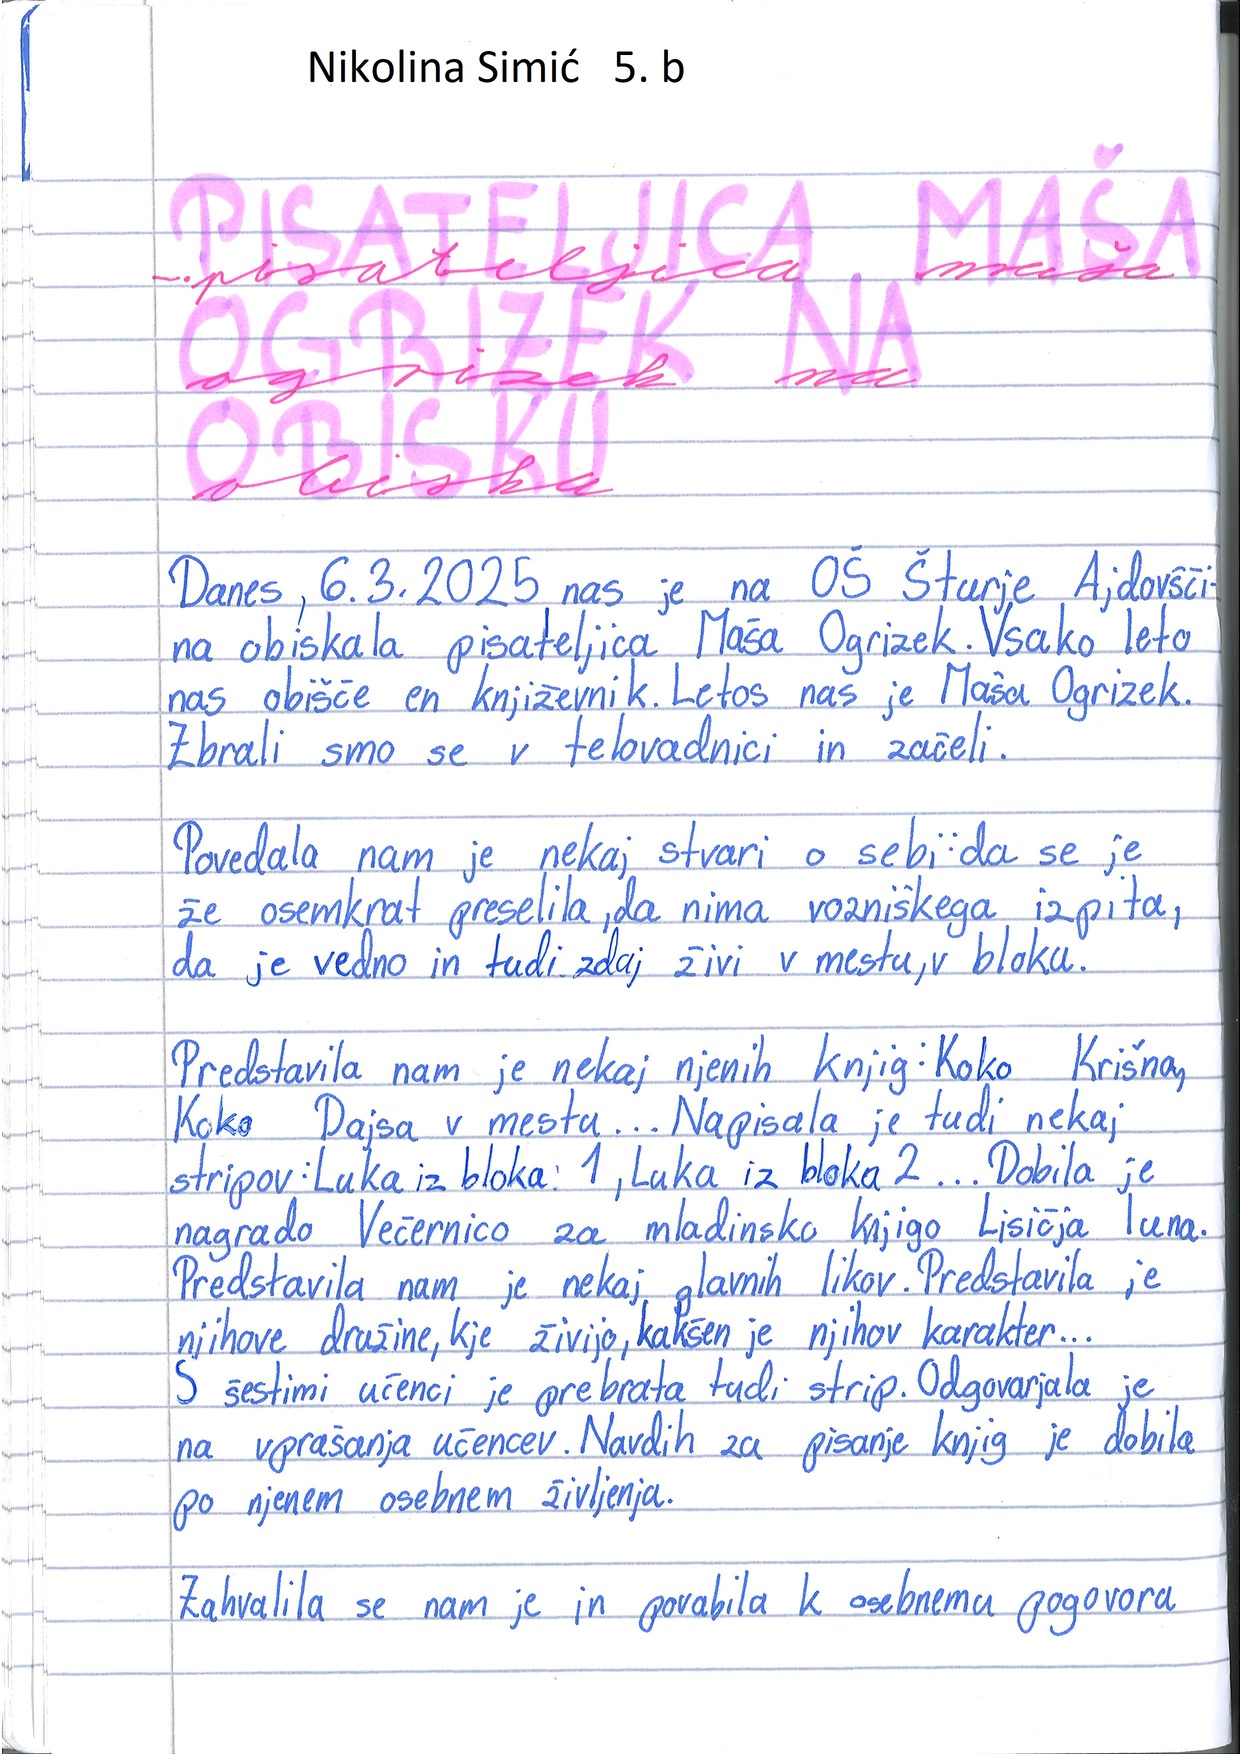 Nikolina Simić 5. b
PISATELJICA MAŠA
pisateljica maša
OGRIZEK NA
ogrizek na
OBISKU
obisku
Danes, 6.3.2025 nas je na OŠ Šturje Ajdovšči-
na obiskala pisateljica Maša Ogrizek. Vsako leto
nas obišče en književnik. Letos nas je Maša Ogrizek.
Zbrali smo se v telovadnici in začeli.
Povedala nam je nekaj stvari o sebi: da se je
že osemkrat preselila, da nima vozniškega izpita,
da je vedno in tudi zdaj živi v mestu, v bloku.
Predstavila nam je nekaj njenih knjig: Koko Krišna,
Koko Dajsa v mestu... Napisala je tudi nekaj
stripov: Luka iz bloka: 1, Luka iz bloka 2 ... Dobila je
nagrado Večernico za mladinsko knjigo Lisičja luna.
Predstavila nam je nekaj glavnih likov. Predstavila je
njihove družine, kje živijo, kakšen je njihov karakter...
S šestimi učenci je prebrata tudi strip. Odgovarjala je
na vprašanja učencev. Navdih za pisanje knjig je dobila
po njenem osebnem življenja.
Zahvalila se nam je in povabila k osebnemu pogovoru